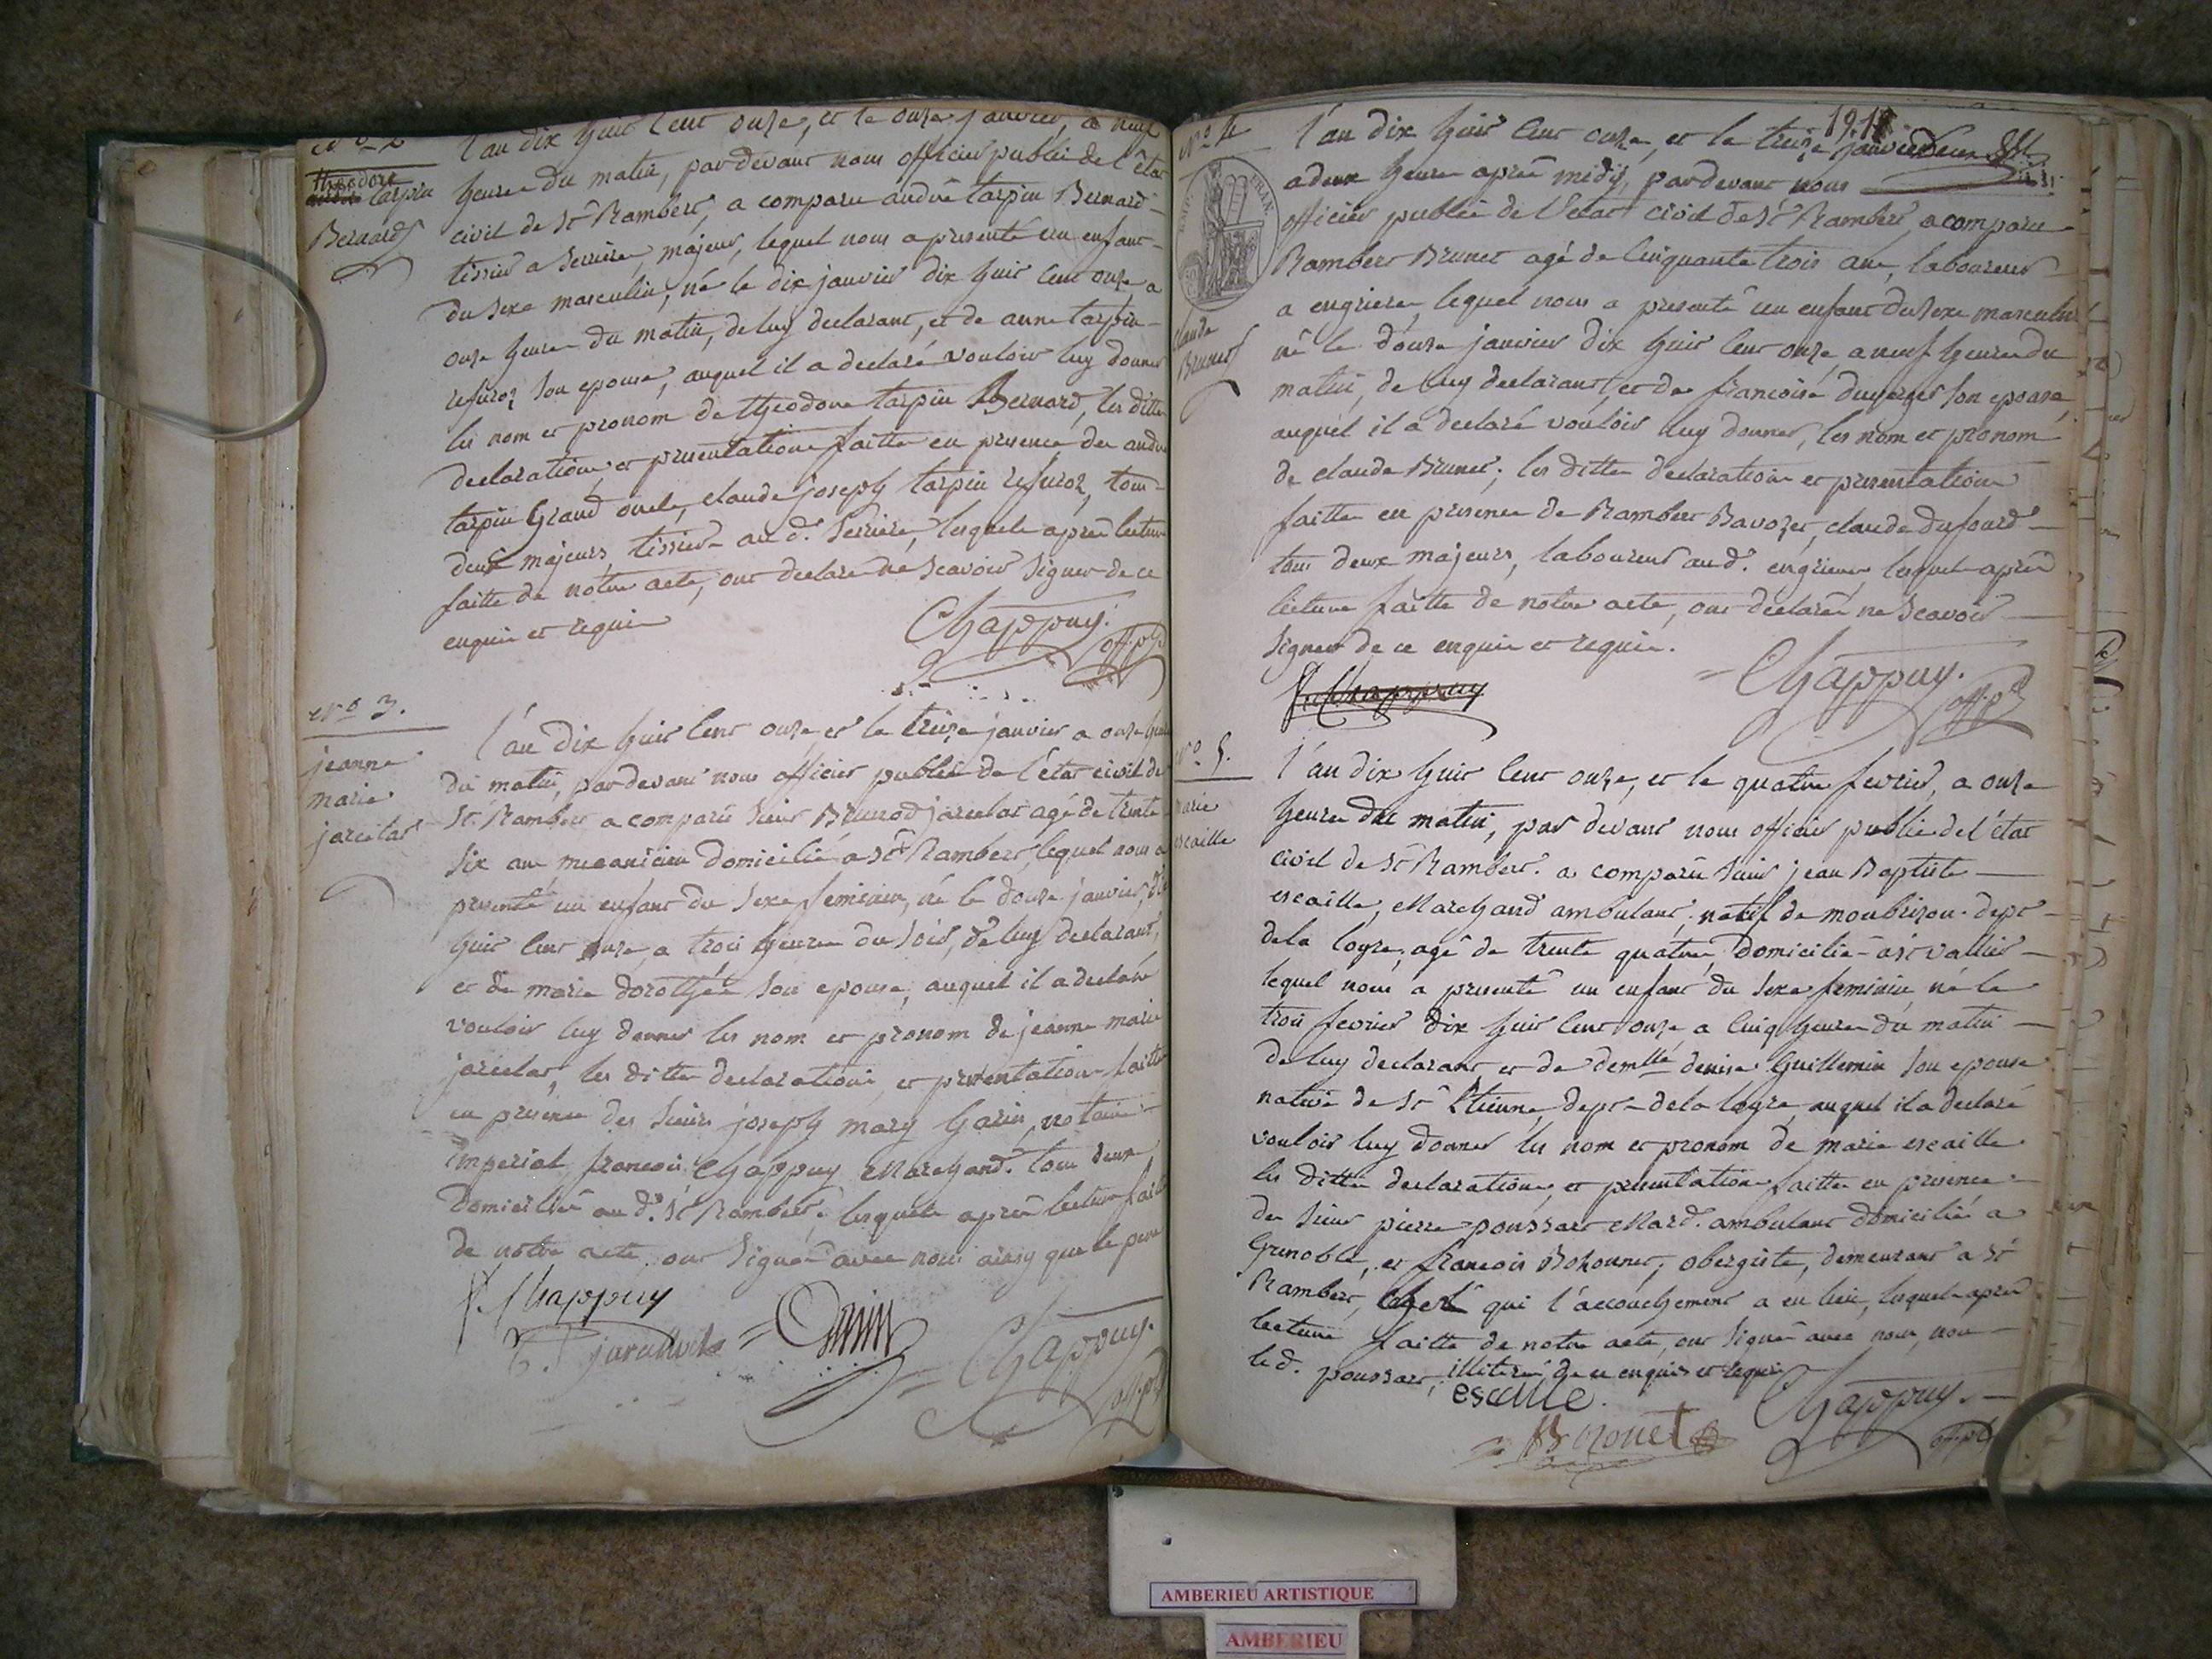 N° 2
theodore
tarpin
Bernard
l'an dix huit cent onze, et le onze janvier, a neuf
heures du matin, pardevant nous officier public de l'état
civil de St Rambert, a comparu andré tarpin Bernard
tissier a Serriere, majeur, lequel nous a presenté un enfant
du sexe masculin, né le dix janvier dix huit cent onze a
onze heures du matin, de luy declarant, et de anne tarpin
son epouse, auquel il a declaré vouloir luy donner
les nom et pronom de theodore tarpin Bernard, les dittes
declarations et presentations faittes en presence de andré
tarpin Grand oncle, claude joseph tarpin refuroz, tous
deux majeurs, tissiers aud. Serriere, lesquels apres lecture
faitte de notre acte, ont declaré ne scavoir signer de ce
enquis et requis
Chappuy.
off. pb
N° 3.
jeanne
marie
jarcelat
l'an dix huit cent onze, et le treize janvier a onze heures
du matin, pardevant nous officier public de l'état civil de
St Rambert a comparu sieur jarcelat agé de trente
six ans mecanicien domicilié a St Rambert, lequel nous a
presenté un enfant du sexe feminin, né le douze janvier, dix
huit cent onze a trois heures du soir, de luy declarant,
et de marie dorothée son epouse, auquel il a declaré
vouloir luy donner les nom et pronom de jeanne marie
jarcelat, les dittes declarations et presentations faittes
en presence des sieurs joseph mary Garin, notaire
imperial, francois Chappuy Marchand. tous deux
domiciliés aud. St Rambert, lesquels apres lecture faitte
de notre acte ont signé avec nous ainsy que le pere
f. Chappuy
Garin
Chappuy.
off. pb
N° 4
EMP. FRAN.
claude
Brunet
19.
l'an dix huit cent onze, et le treize janvier
a deux heures apres midy, pardevant nous
officier public de l'etat civil de St Rambert, a comparu
Rambert Brunet agé de cinquante trois ans, laboureur
a engrieres, lequel nous a presenté un enfant du sexe masculin
né le douze janvier dix huit cent onze, a neuf heures du
matin, de luy declarant, et de francoise duverger son epouse,
auquel il a declaré vouloir luy donner, les nom et pronom
de claude Brunet; les dittes declarations et presentations
faittes en presence de Rambert Ravozet, claude dufourd
tous deux majeurs, laboureurs aud. engrieres, lesquels apres
lecture faitte de notre acte, ont declaré ne scavoir
signer de ce enquis et requis.
f. Chappuy
Chappuy.
off. pb
N° 5.
marie
escaille
l'an dix huit cent onze, et le quatre fevrier, a onze
heures du matin, par devant nous officier public de l'état
civil de St Rambert. a comparu sieur jean Baptiste
escaille, Marchand ambulant, natif de monbrizon. dept
de la loyre, agé de trente quatre, domicilié a St vallier
lequel nous a presenté un enfant du sexe feminin né le
trois fevrier dix huit cent onze, a cinq heures du matin
de luy declarant et de demlle denise Guillemin son epouse
native de St Etienne, dept de la loyre, auquel il a declaré
vouloir luy donner les nom et pronom de marie escaille
les dittes declarations, et presentations faittes en presence
de sieur pierre poussart Mard. ambulant domicilié a
Grenoble, et francois Bohounet, obergiste, demeurant a St
Rambert, chez qui l'accouchement a eu lieu, lesquels apres
lecture faitte de notre acte, ont signé avec nous, non
led. poussart, illitéré, de ce enquis et requis
escalle.
Chappuy.
off. pb
AMBERIEU ARTISTIQUE
AMBERIEU